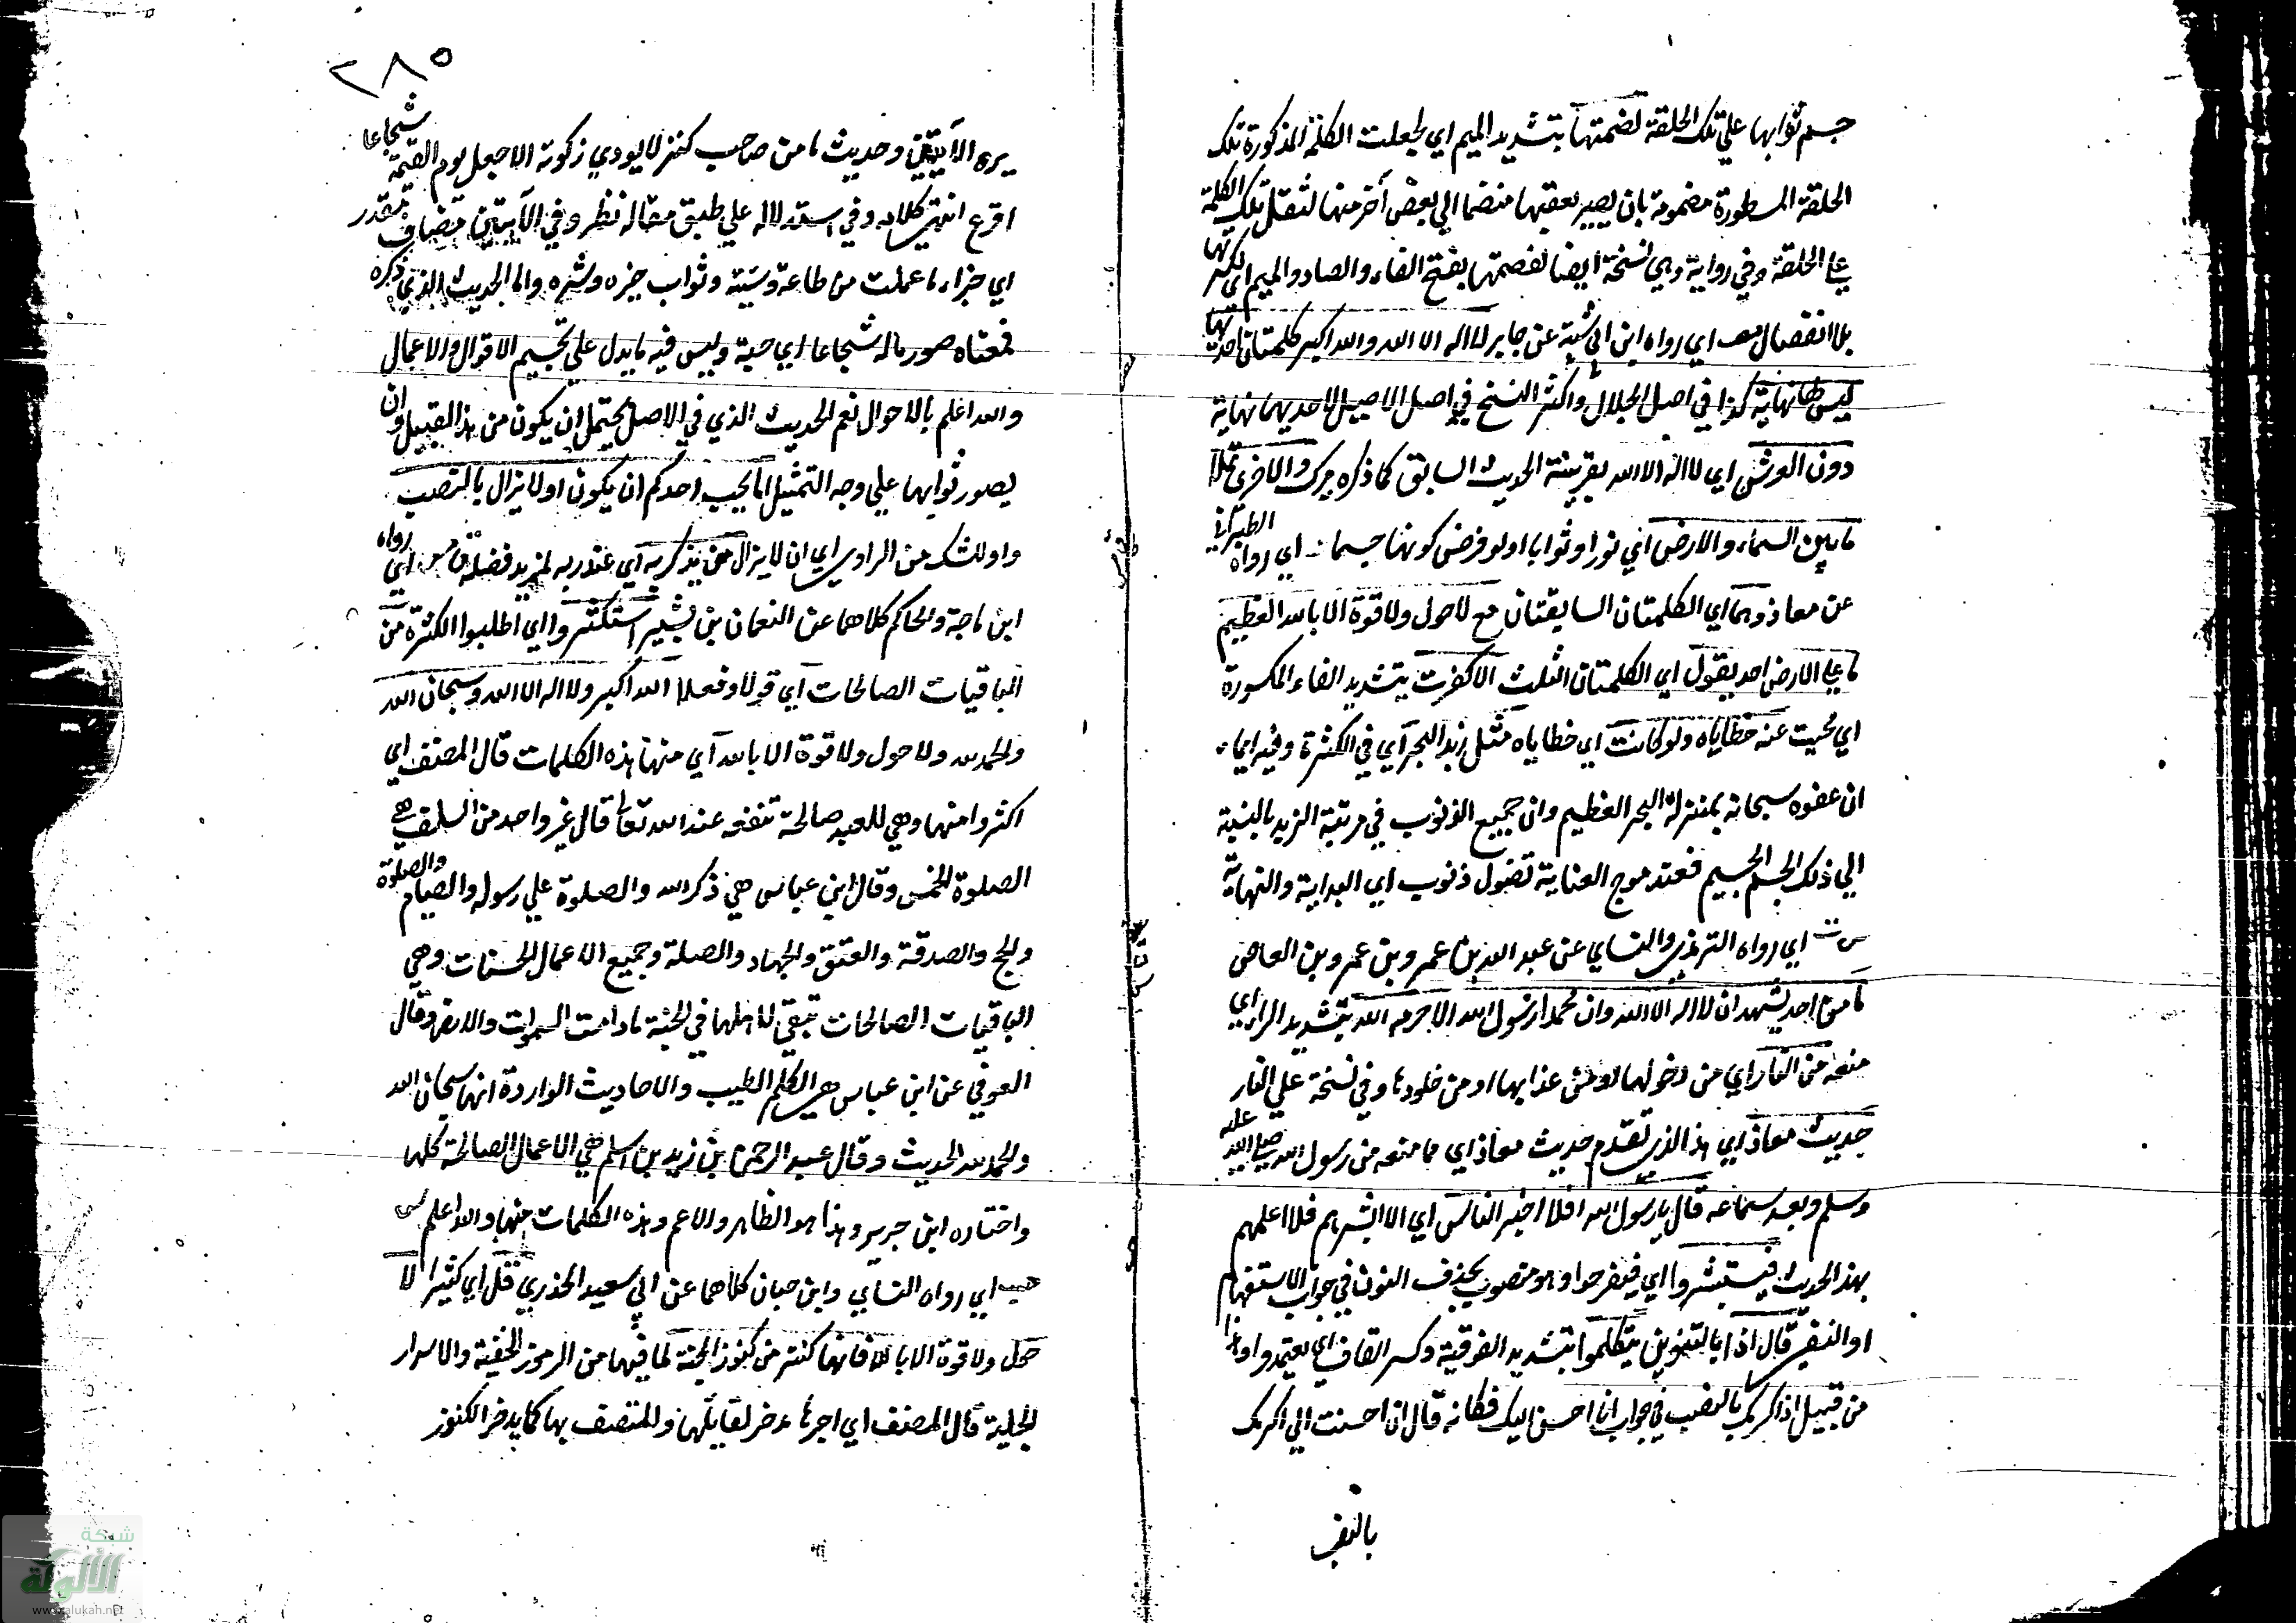 جسم ثوابها علي تلك الحلقة لضمتها بتشديد الميم اي لجعلت الكلمة المذكورة تلك
الحلقة المسطورة مضمومة بان يصير بعضها منضما الي بعض آخر منها لثقل تلك الكلمة
علي الحلقة وفي رواية وهي نسخة ايضا لفصمتها بفتح الفاء والصاد والميم اي لكسرتها
بلا انفصال مص اي رواه ابن ابي شيبة عن جابر لا اله الا الله والله اكبر كلمتان احديهما
ليس لها نهاية كذا في اصل الجلال واكثر النسخ في اصل الاصيل لاحديهما نهاية
دون العرش اي لا اله الا الله بقرينة الحديث السابق كما ذكره ميرك والاخرى تملأ
ما بين السماء والارض اي نورا وثوابا او لو فرض كونها جسما اي رواه الطبراني
عن معاذ وهما اي الكلمتان السابقتان مع لا حول ولا قوة الا بالله العظيم
ما علي الارض احد يقول اي الكلمتان الثلث الا كفرت بتشديد الفاء المكسورة
اي محيت عنه خطاياه ولو كانت اي خطاياه مثل زبد البحر اي في الكثرة وفيه ايماء
ان عفوه سبحانه بمنزلة البحر العظيم وان جميع الذنوب في مرتبة الزبد بالنسبة
الي ذلك الجسم الجسيم فعند موج العناية تضول ذنوب اي البداية والنهاية
س ت اي رواه الترمذي والنساي عن عبد الله بن عمرو بن عمرو بن العاص
ما من احد يشهد ان لا اله الا الله وان محمدا رسول الله الا حرمه الله بتشديد الراء اي
منعه من النار اي من دخولها او من عذابها او من خلودها وفي نسخة علي النار
حديث معاذ اي هذا الذي تقدم حديث معاذ اي مما منعه من رسول الله صلي الله عليه
وسلم وبعد سماعه قال يا رسول الله افلا اخبر الناس اي الا ابشرهم فلا اعلمهم
بهذا الحديث فيستبشروا اي فيفرحوا وهو منصوب بحذف النون في جواب الاستفهام
او النفي قال اذا بالتنوين يتكلموا بتشديد الفوقية وكسر القاف اي يعتمدوا وهذا
من قبيل اذا اكرمك بالنصب في جواب انا احسن اليك فكانه قال ان احسنت الي اكرمك
بالنصب
٢٨٥
يره الآيتين وحديث ما من صاحب كنز لا يودي زكوته الا جعل يوم القيمة شجاعا
اقرع انتهى كلامه وفي استدلاله علي طبق مقاله نظر وفي الآيتين مضاف مقدر
اي جزاء ما عملت من طاعة وسيئة وثواب خيره وشره واما الحديث الذي ذكره
فمعناه صور ماله شجاعا اي حية وليس فيه ما يدل علي تجسيم الاقوال والاعمال
والله اعلم بالاحوال نعم الحديث الذي في الاصل يحتمل ان يكون من هذا القبيل وان
يصور ثوابها علي وجه التمثيل اما يحب احدكم ان يكون او لا يزال بالنصب
واو للشك من الراوي اي ان لا يزال من يذكر به اي عند ربه لمزيد فضله ق مس اي رواه
ابن ماجة والحاكم كلاهما عن النعمان بن بشير استكثروا اي اطلبوا الكثرة من
الباقيات الصالحات اي قولا وفعلا الله اكبر ولا اله الا الله وسبحان الله
والحمد لله ولا حول ولا قوة الا بالله اي منها هذه الكلمات قال المصنف اي
اكثروا منها وهي للعبد صالحة تنفعه عند الله تعالى قال غير واحد من السلف هي
الصلوة الخمس وقال ابن عباس هي ذكر الله والصلوة علي رسوله والصيام والصلوة
والحج والصدقة والعتق والجهاد والصلة وجميع الاعمال الحسنات وهي
الباقيات الصالحات تبقي لاهلها في الجنة ما دامت السموات والارض وقال
العوفي عن ابن عباس هي الكلم الطيب والاحاديث الواردة انها سبحان الله
والحمد لله الحديث وقال عبد الرحمن بن زيد بن اسلم هي الاعمال الصالحة كلها
واختاره ابن جرير وهذا هو الظاهر والاعم وهذه الكلمات منها والله اعلم س
حب اي رواه النساي وابن حبان كلاهما عن ابي سعيد الخدري قل اي كثيرا لا
حول ولا قوة الا بالله فانها كنز من كنوز الجنة لما فيها من الرموز الخفية والاسرار
الجلية قال المصنف اي اجرها مدخر لقايلها والمتصف بها كما يدخر الكنوز
شبكة
الألوكة
www.alukah.net